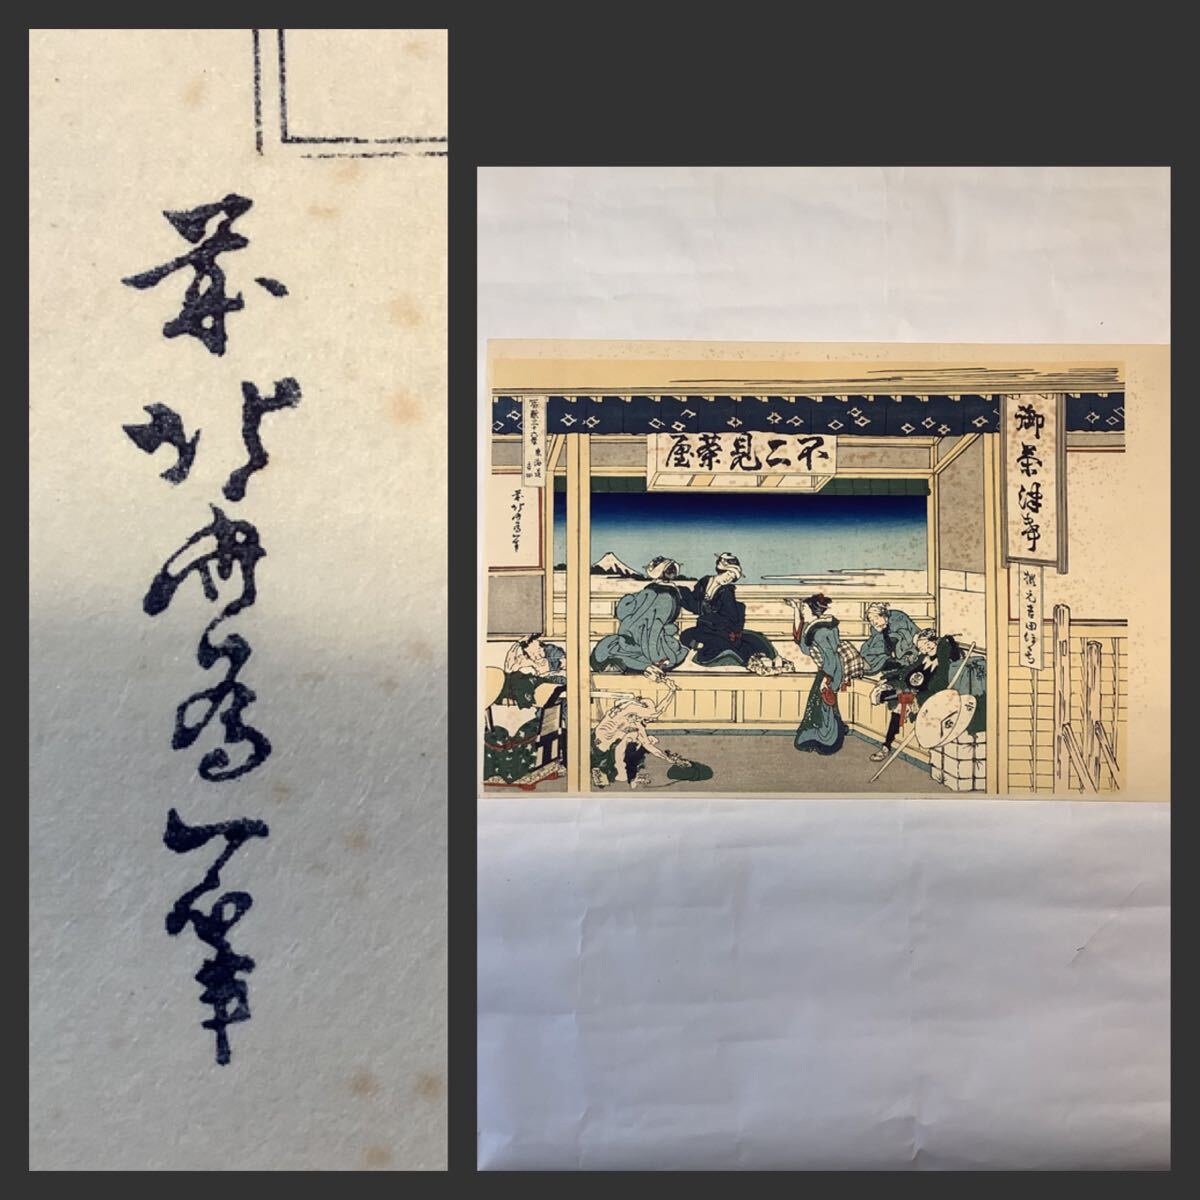 前北斎為一筆
冨嶽三十六景 東海道
吉田
前北斎為一筆
不二見茶屋
御茶津希
根元吉田保くち